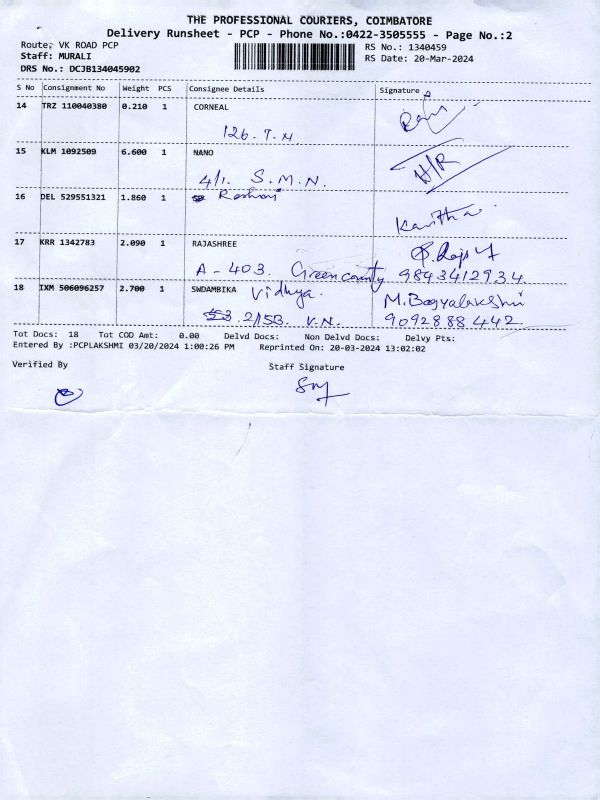 THE PROFESSIONAL COURIERS, COIMBATORE
Delivery Runsheet - PCP - Phone No.:0422-3505555 - Page No.:2
Route: VK ROAD PCP RS No.: 1340459
Staff: MURALI RS Date: 20-Mar-2024
DRS No.: DCJB134045902
S No Consignment No Weight PCS Consignee Details Signature
14 TRZ 110040380 0.210 1 CORNEAL
126. T. N
15 KLM 1092509 6.600 1 NANO H/R
4/1. S.M.N.
16 DEL 529551321 1.860 1 Roshni
Kavitha
17 KRR 1342783 2.090 1 RAJASHREE
A - 403. Green county 9843412934
18 IXM 506096257 2.700 1 SWDAMBIKA Vidhya. M. Bagyalakshmi
2/53. V.N. 9092888442
Tot Docs: 18 Tot COD Amt: 0.00 Delvd Docs: Non Delvd Docs: Delvy Pts:
Entered By :PCPLAKSHMI 03/20/2024 1:00:26 PM Reprinted On: 20-03-2024 13:02:02
Verified By Staff Signature